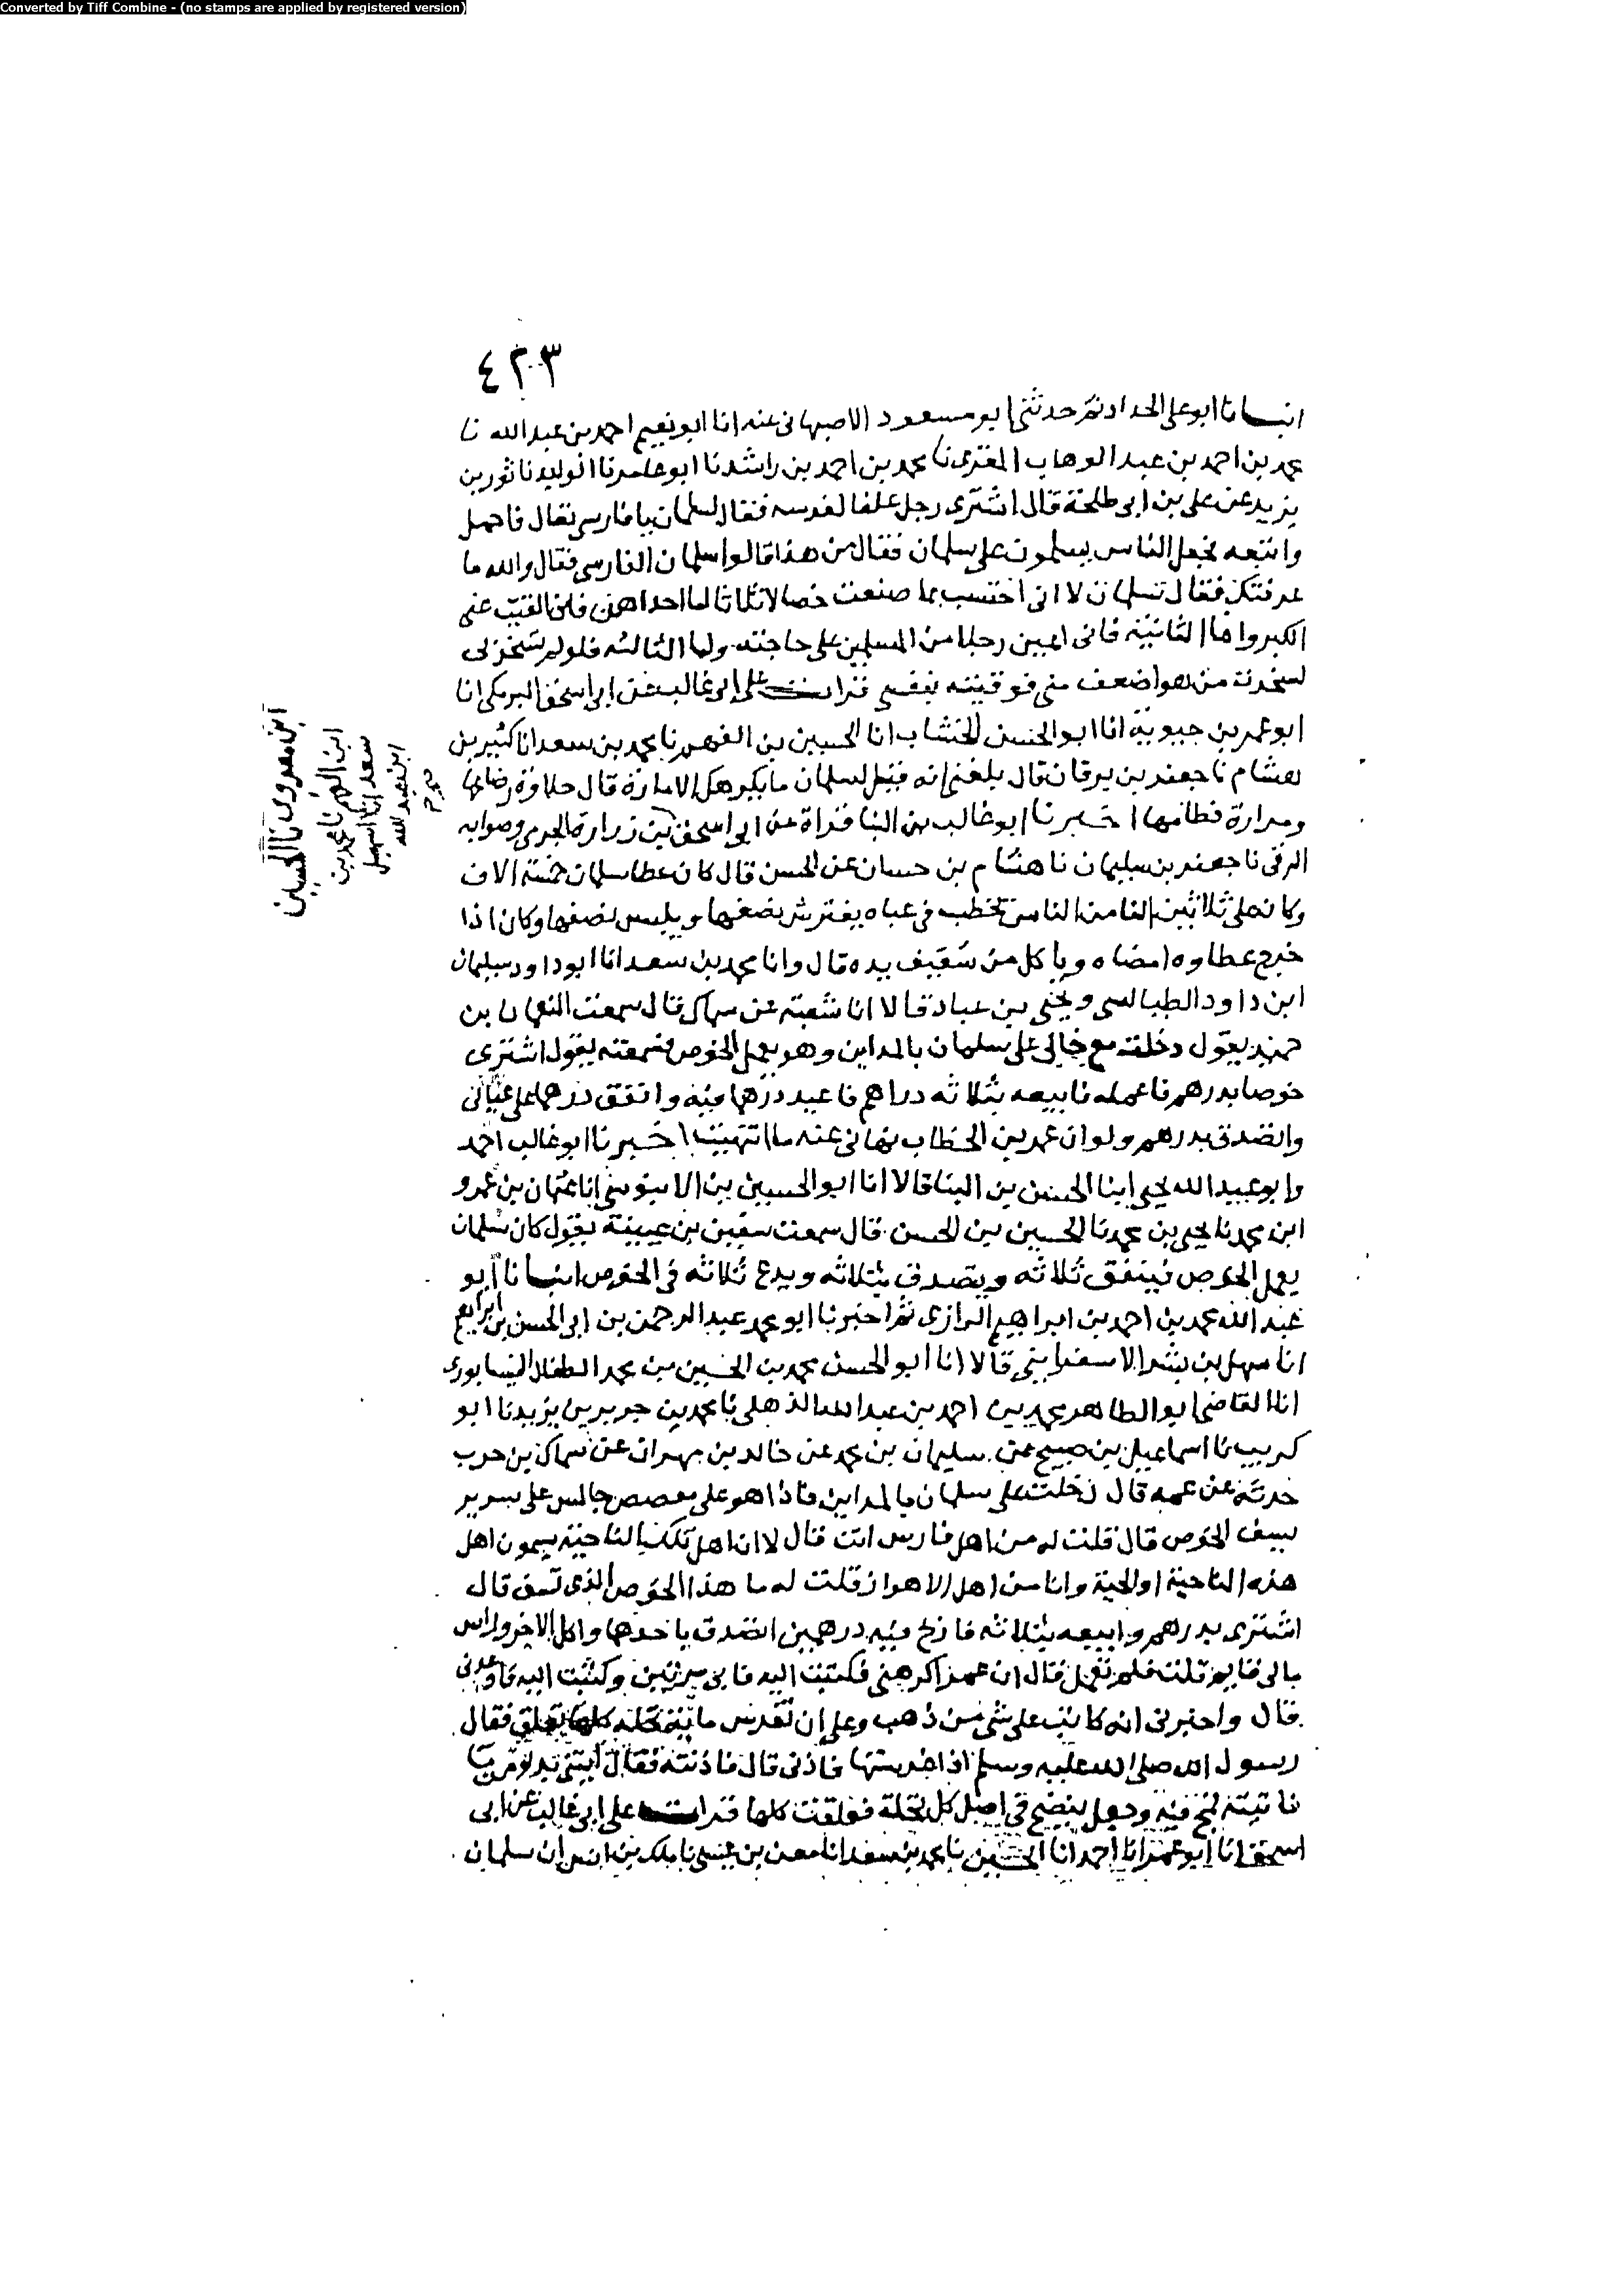 Converted by Tiff Combine - (no stamps are applied by registered version)
٤٢٣
انبانا ابو على الحداد ثم حدثنى ابو مسعود الاصبهانى عنه انا ابو نعيم احمد بن عبد الله نا
محمد بن احمد بن عبد الوهاب المقرى نا محمد بن احمد بن راشد نا ابو عامر نا الوليد نا ثور بن
يزيد عن على بن ابى طلحة قال اشترى رجل علفا لفرسه فقال لسلمان يا فارسى تعال فاحمل
واتبعه فجعل الناس يسلمون على سلمان فقال من هذا قالوا سلمان الفارسى فقال والله ما
عرفتك فقال سلمان لا انى احتسب بما صنعت خصالا ثلاثا اما احداهن فانى القيت عنى
الكبر واما الثانية فانى اعين رجلا من المسلمين على حاجته واما الثالثه فلو لم تسخرنى
لسخرت من هو اضعف منى فوقيته بنفسى قرات على ابى غالب عن ابى اسحق البرمكى انا
ابو عمر بن حيوية انا ابو الحسن الخشاب انا الحسين بن الفهم نا محمد بن سعد انا كثير بن
هشام نا جعفر بن برقان قال بلغنى انه قيل لسلمان ما يكرهك الامارة قال حلاوة رضاعها
ومرارة فطامها اخبرنا ابو غالب بن البنا قراة عن ابى اسحق بن زرارة الجرمى وصوابه
الرقى نا جعفر بن سليمان نا هشام بن حسان عن الحسن قال كان عطا سلمان خمسة الاف
وكان على ثلاثين الفا من الناس يخطب فى عباه يفترش نصفها ويلبس نصفها وكان اذا
خرج عطاوه امضاه وياكل من سفيف يده قال وانا محمد بن سعد انا ابو داود سليمان
ابن داود الطيالسى ويحيى بن عباد قالا انا شعبة عن سماك قال سمعت النعمان بن
حميد يقول دخلت مع خالى على سلمان بالمداين وهو يعمل الخوص فسمعته يقول اشترى
خوصا بدرهم فاعمله فابيعه بثلاثه دراهم فاعيد درهما فيه وانفق درهما على عيالى
واتصدق بدرهم ولو ان عمر بن الخطاب نهانى عنه ما انتهيت اخبرنا ابو غالب احمد
وابو عبيد الله يحيى ابنا الحسن بن البنا قالا انا ابو الحسين بن الابنوسى انا عثمان بن عمرو
ابن محمد نا يحيى بن محمد نا الحسين بن الحسن قال سمعت سفين بن عيينة يقول كان سلمان
يعمل الخوص فينفق ثلاثه ويتصدق بثلاثه ويدع ثلاثه فى الخوص انبانا ابو
عبد الله محمد بن احمد بن ابراهيم الرازى ثم اخبرنا ابو محمد عبد الرحمن بن ابى الحسن بن ابراهيم
انا سهل بن بشر الاسفراينى قالا انا ابو الحسن محمد بن الحسين بن محمد الطفال النيسابورى
انا القاضى ابو الطاهر محمد بن احمد بن عبد الله الذهلى نا محمد بن جرير بن يزيد نا ابو
كريب نا اسماعيل بن صبيح عن سليمان بن محمد عن خالد بن مهران عن سماك بن حرب
حدثه عن عمه قال دخلت على سلمان بالمداين فاذا هو على جالس على سرير
يسف الخوص قال قلت له من اهل فارس انت قال لا انا اهل تلك الناحية يسمون اهل
هذه الناحية وانا من اهل الاهواز قلت له ما هذا الخوص الذى تسف قال
اشترى بدرهم وابيعه بثلاثه فاربح فيه درهمين اتصدق باحدهما واكل الاخر وراس
مالى قايم قلت فلم تعمل قال ان عمر اكرهنى فكتبت اليه فابى مرتين وكتبت اليه فاوعدنى
قال واخبرنى انه كاتب على شى من ذهب وعلى ان تغرس مائة نخله كلها تعلق فقال
رسول الله صلى الله عليه وسلم اذا غرستها فاذنى قال فاذنته فقال ايتنى بدلو من ما
فاتيته فمج فيه وجعل ينضح فى اصل كل نخلة فعلقت كلها قرات على ابى غالب عن ابى
اسحق انا ابو عمر انا احمد انا الحسين نا محمد بن سعد انا معن بن عيسى نا ملك بن انس ان سلمان
ابن معروف نا الحسين
ابن الفهم نا محمد بن
سعد انا اسمعيل
ابن عبد الله